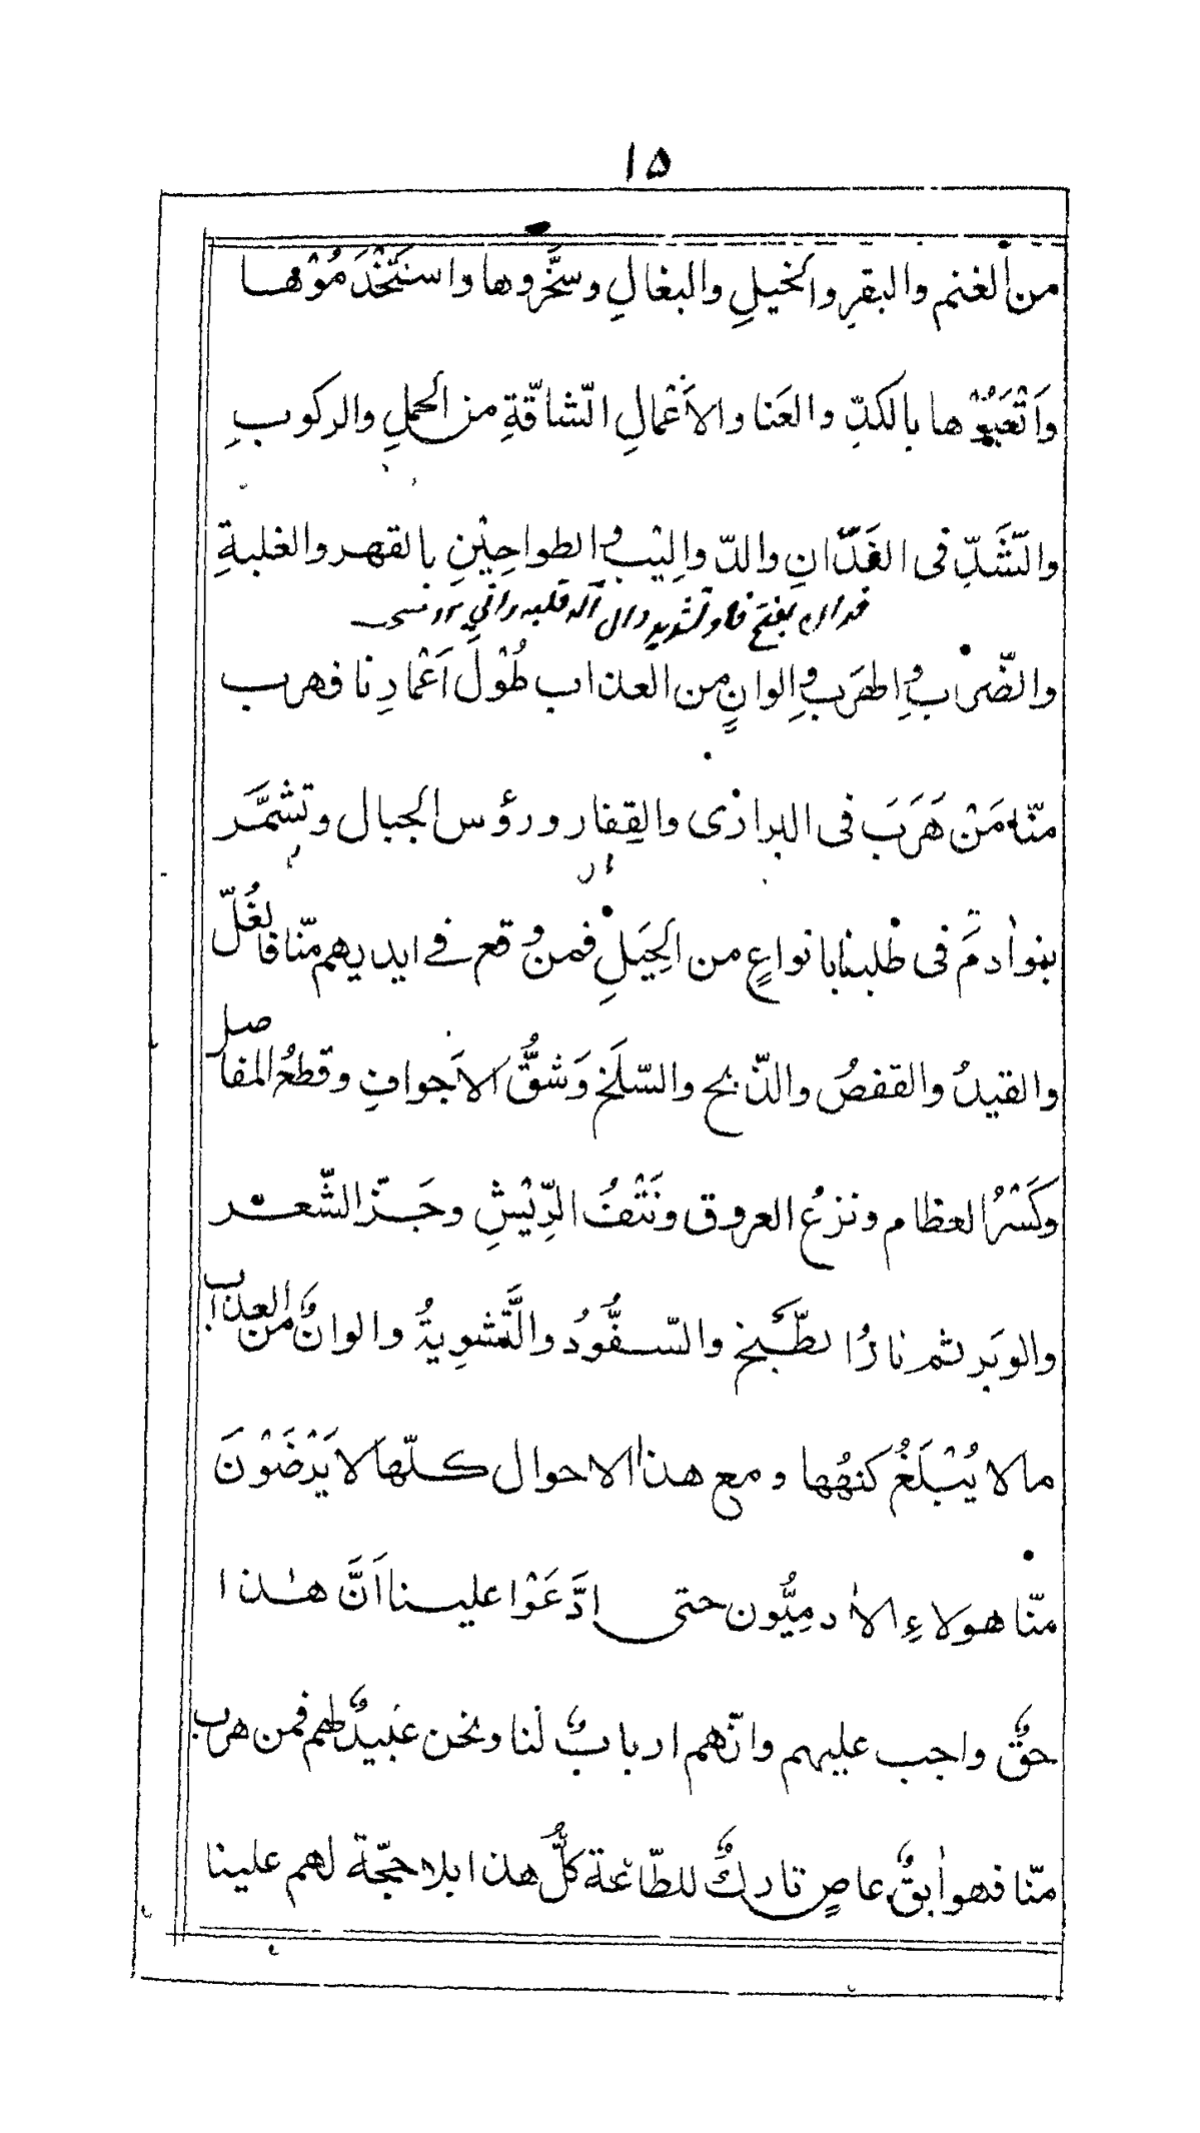 ۱۵
من الغنم والبقرِ والخيلِ والبغالِ وسخَّروها واسْتَخْدَمُوْها
وَاَتْعَبُوْها بالكدِّ والعَنا والاَعْمالِ الشّاقّةِ من الحملِ والركوبِ
والشَّدِّ فى الفَدّانِ والدّواليْبِ والطواحِيْنِ بالقهر والغلبةِ
فدان بفتح فا وتشديد دال آله قلبه رانى
والضّرْبِ والهرَبِ والوانٍ من العذاب طُوْلَ اَعْمارِنا فهرب
منّا مَنْ هَرَبَ فى البرارى والقِفار ورؤس الجبال وتشمَّر
بنو اٰدمَ فى طلبنا بانواعٍ من الحِيَلِ فمن وقع فے ايديهم منّا فالغُلّ
والقيدُ والقفصُ والذّبح والسّلَخ وَشقُّ الاَجوافِ وقطعُ المفاصل
وكَسْرُ العظام ونزعُ العروق ونَتْفُ الرِّيْشِ وجَزّ الشّعر
والوَبَر ثم نارُ الطّبْخ والسّفُّودُ والتَّشوِيةُ والوانٌ من العذاب
ما لا يُبْلَغُ كنهُها ومع هذا الاحوال كلّها لا يَرْضَوْنَ
منّا هولاءِ الاٰدمِيُّون حتى ادَّعَوْا علينا اَنَّ هٰذا
حقٌّ واجب عليهم وانّهم اربابٌ لنا ونحن عَبيدٌ لهم فمن هرب
منّا فهو اٰبقٌ عاصٍ تاركٌ للطّاعة كلُّ هذا بلا حجّة لهم علينا